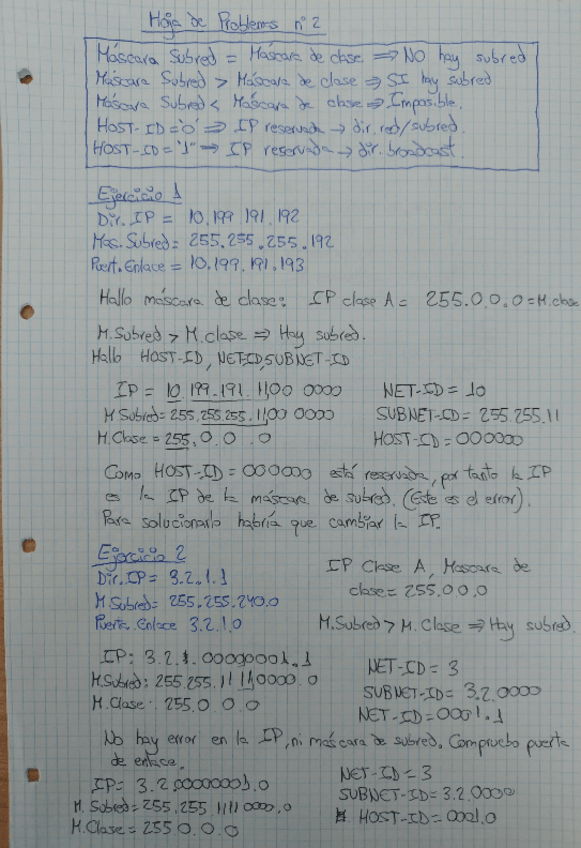 Hoja de Problemas nº2
Máscara Subred = Máscara de clase ⇒ NO hay subred
Máscara Subred > Máscara de clase ⇒ SI hay subred
Máscara Subred < Máscara de clase ⇒ Imposible.
HOST-ID='0' ⇒ IP reservada → dir. red/subred.
HOST-ID='1' ⇒ IP reservada → dir. broadcast.
Ejercicio 1
Dir. IP = 10.199.191.192
Mas. Subred = 255.255.255.192
Puert. Enlace = 10.199.191.193
Hallo máscara de clase: IP clase A = 255.0.0.0 = M.clase
M.Subred > M.clase ⇒ Hay subred.
Hallo HOST-ID, NET-ID, SUBNET-ID
IP = 10.199.191.1100 0000 NET-ID = 10
M Subred = 255.255.255.1100 0000 SUBNET-ID = 255.255.11
M.Clase = 255.0.0.0 HOST-ID = 000000
Como HOST-ID = 000000 está reservada, por tanto la IP
es la IP de la máscara de subred. (Este es el error).
Para solucionarlo habría que cambiar la IP.
Ejercicio 2
IP Clase A, Mascara de
Dir. IP = 3.2.1.1
clase = 255.0.0.0
M.Subred = 255.255.240.0
Puerta. Enlace 3.2.1.0
M.Subred > M.Clase ⇒ Hay subred.
IP: 3.2.1.00000001.1
NET-ID = 3
M.Subred: 255.255.11110000.0
SUBNET-ID = 3.2.0000
M.Clase: 255.0.0.0
NET-ID = 0001.1
No hay error en la IP, ni máscara de subred. Compruebo puerta
de enlace.
NET-ID = 3
IP: 3.2.00000001.0
SUBNET-ID = 3.2.0000
M. Subred = 255.255.11110000.0
HOST-ID = 0001.0
M.Clase = 255.0.0.0